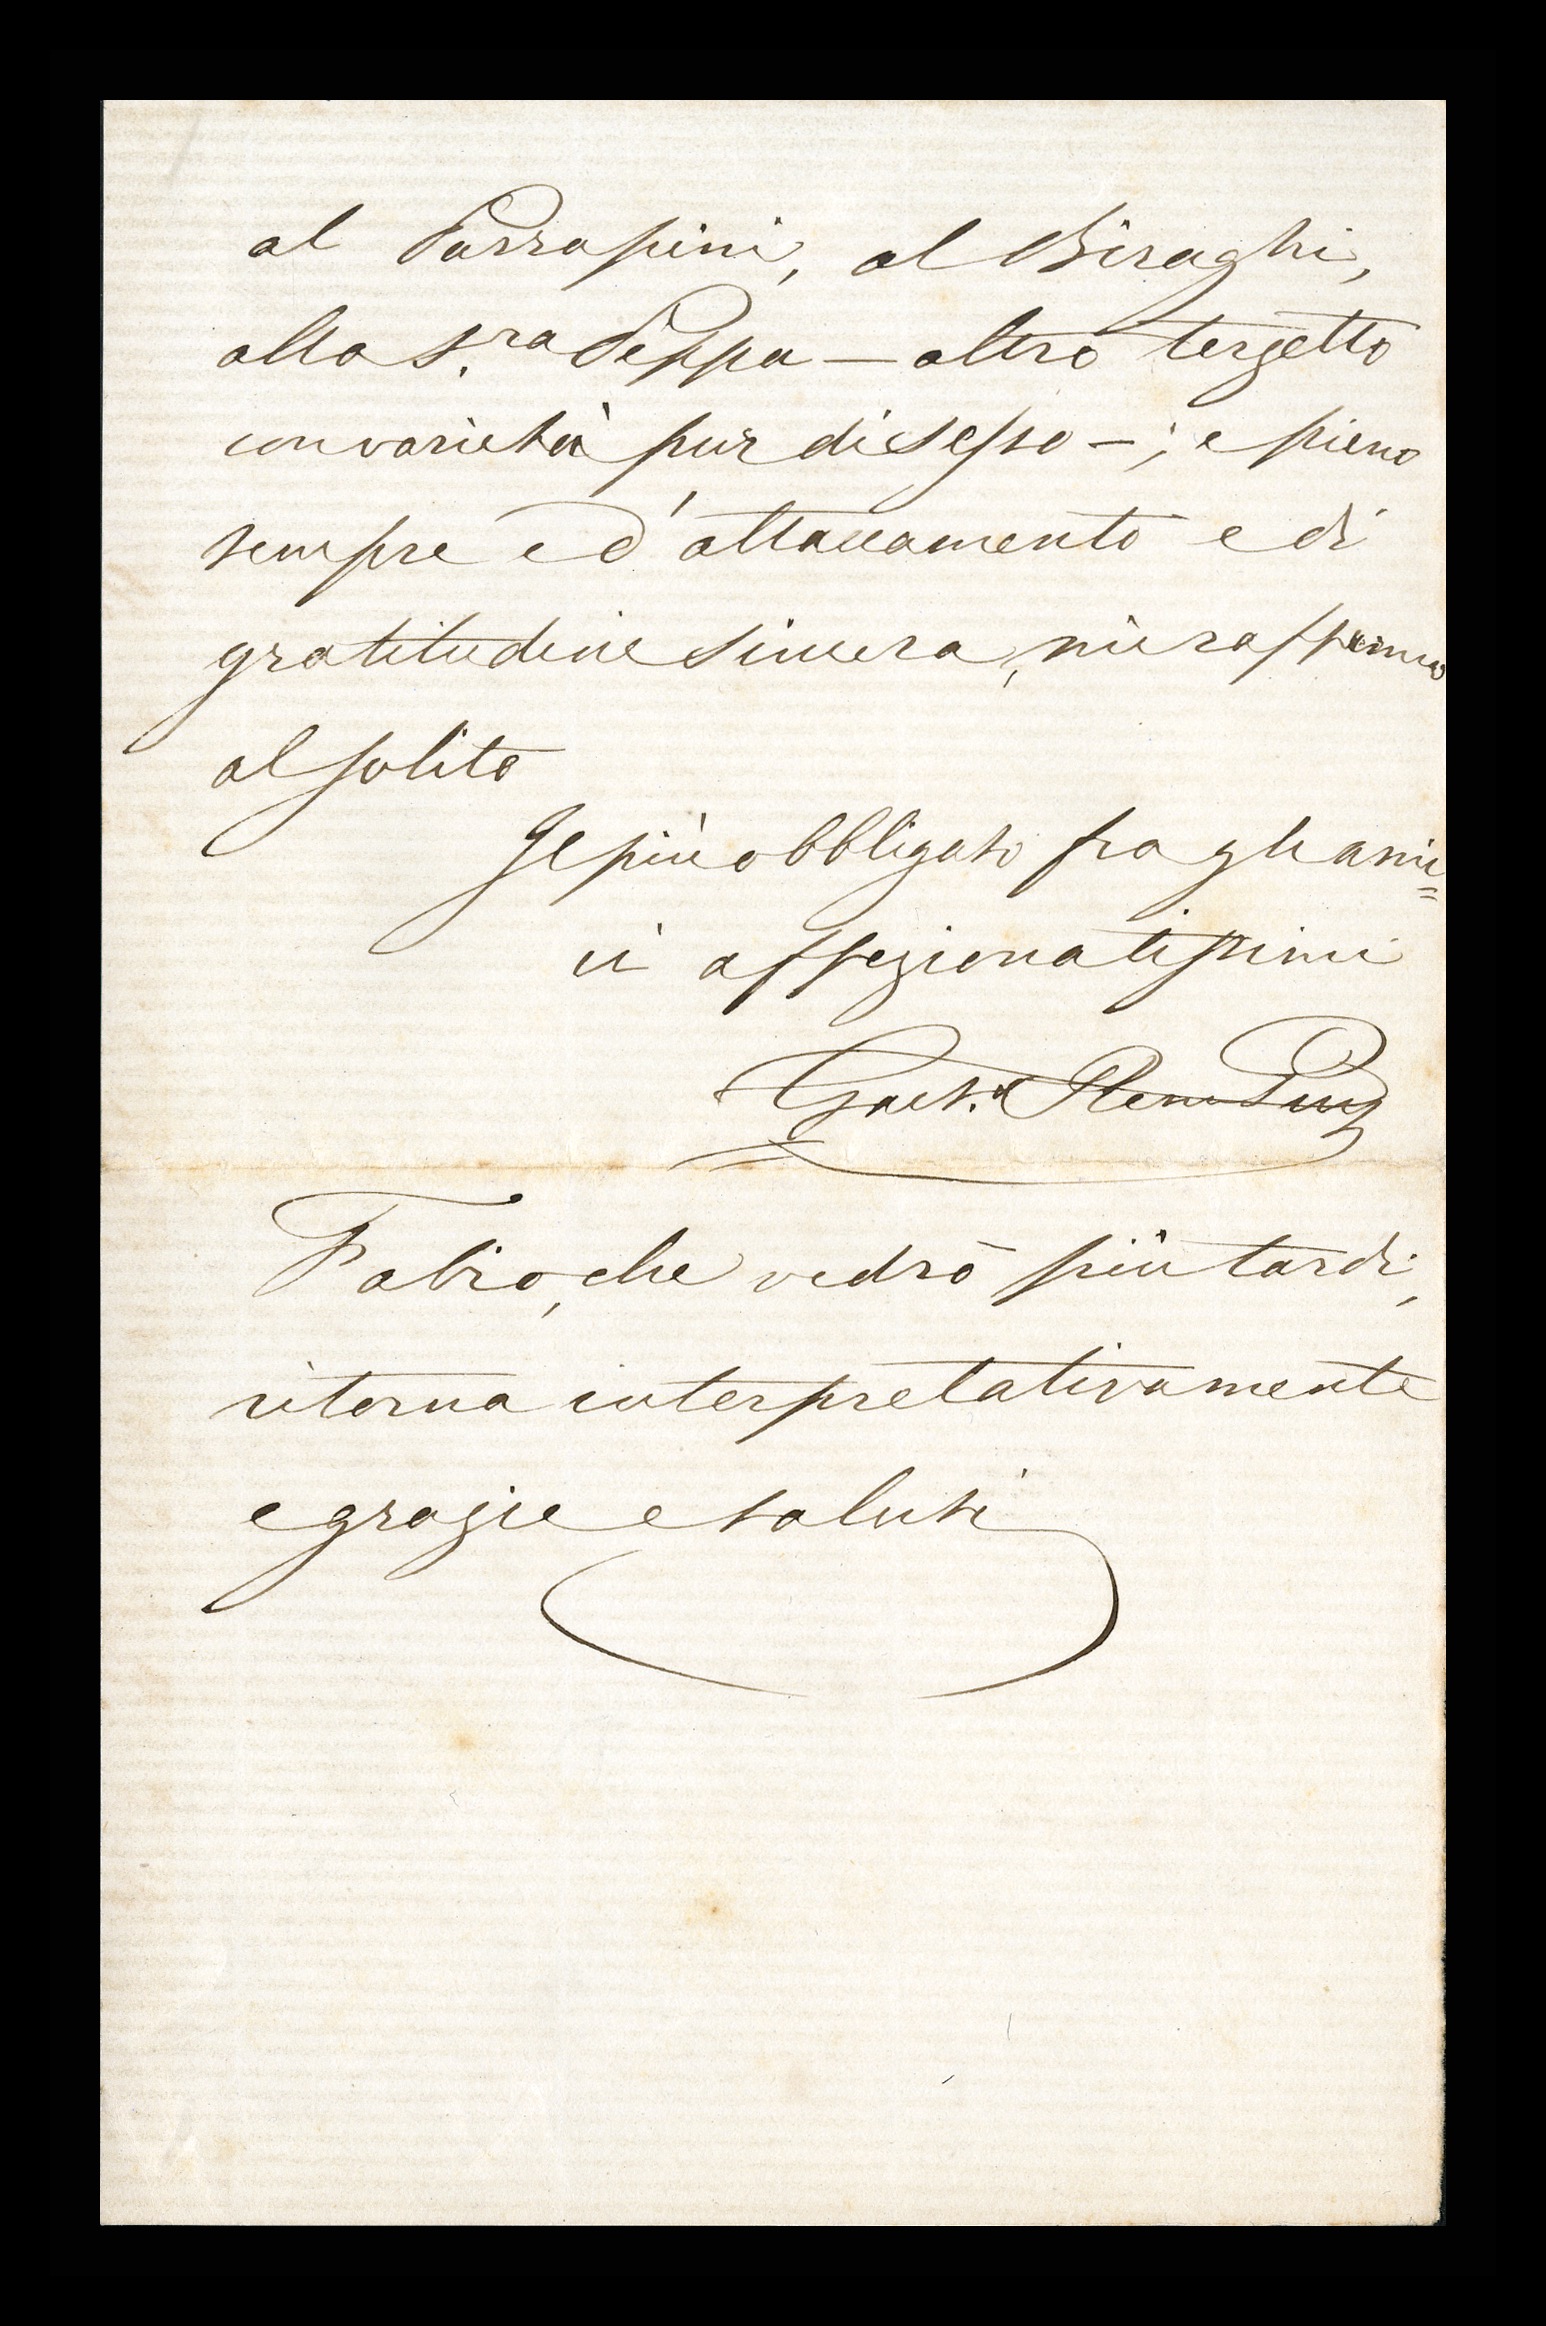 al Parrapini, al Biraghi,
alla S.ra Peppa — altro terzetto
con varietà pur di sesso — ; e pieno
sempre e d'attaccamento e di
gratitudine sincera, mi raffermo
al solito
Il più obbligato fra gli ami=
ci affezionatissimi
Fabio, che vedrò più tardi,
ritorna interpretativamente
e grazie e saluti